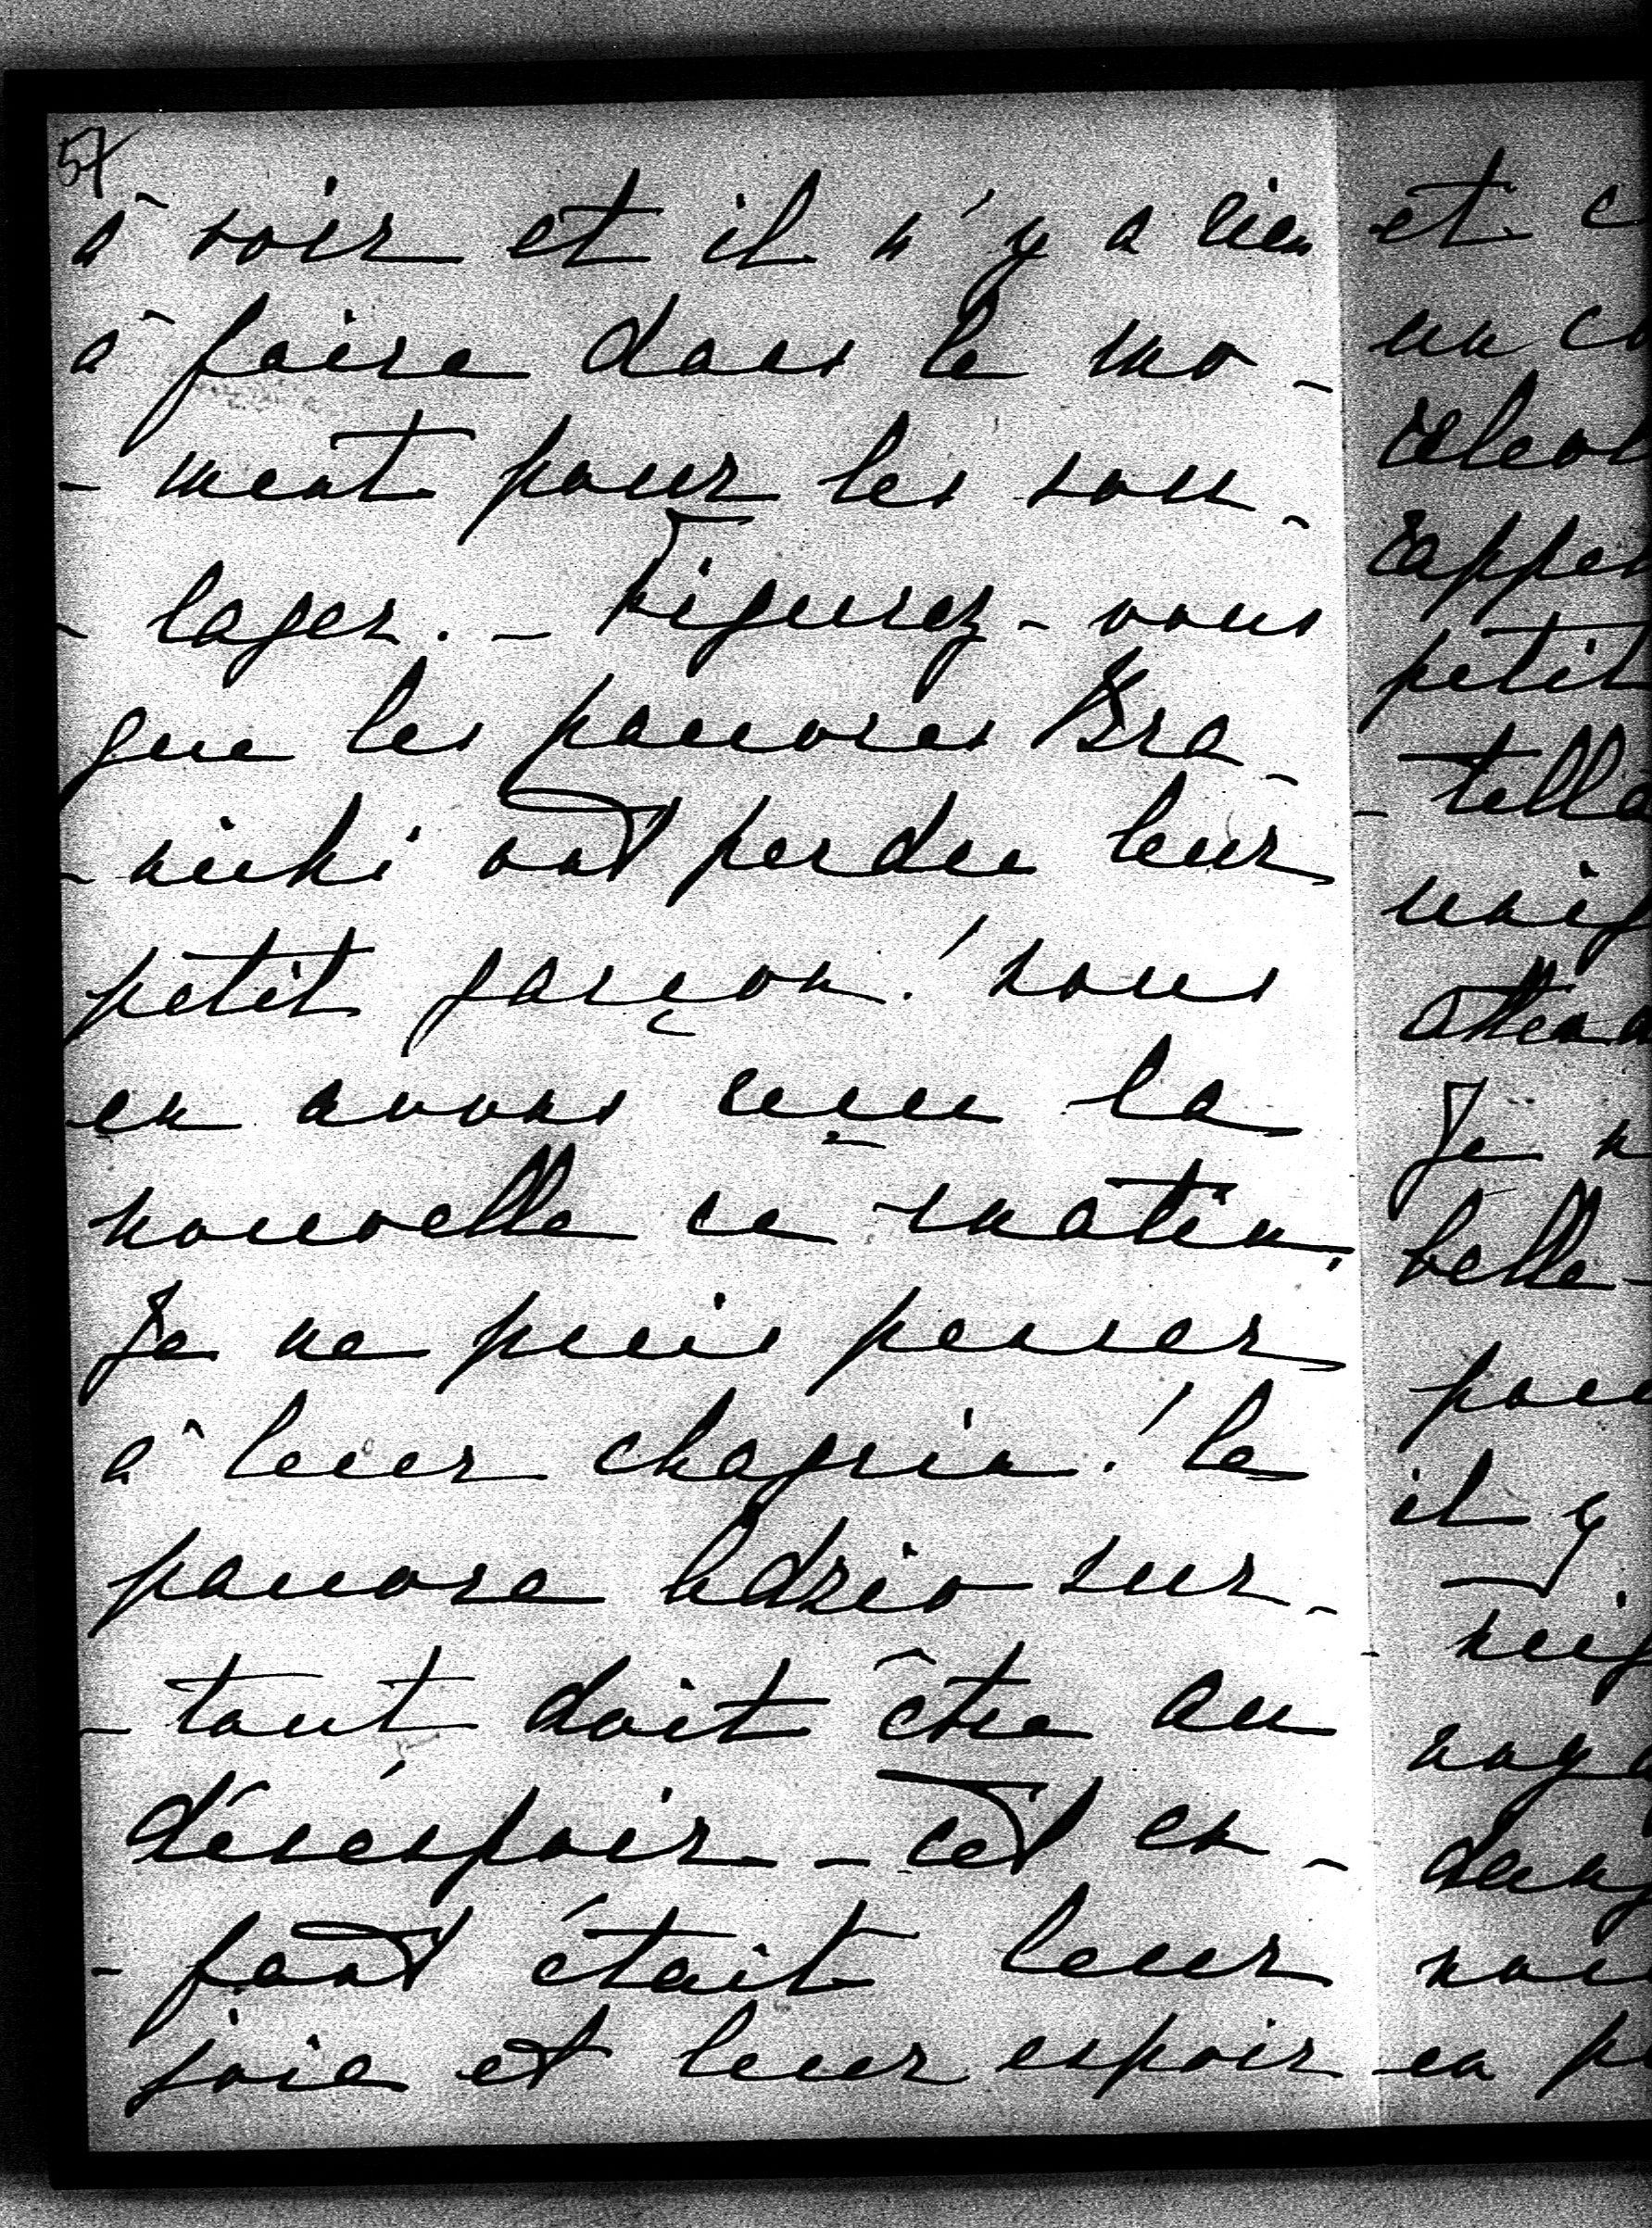 57
à voir et il n'y a rien
à faire dans le mo-
-ment pour les sou-
-lager. - Figurez-vous
que les pauvres Bra-
-nicki ont perdu leur
petit garçon! nous
en avons reçu la
nouvelle ce matin.
Je ne puis penser
à leur chagrin! le
pauvre Adzio sur-
-tout doit être au
désespoir - cet en-
-fant était leur
joie et leur espoir
et
un
petit
Je
belle-
il y
en